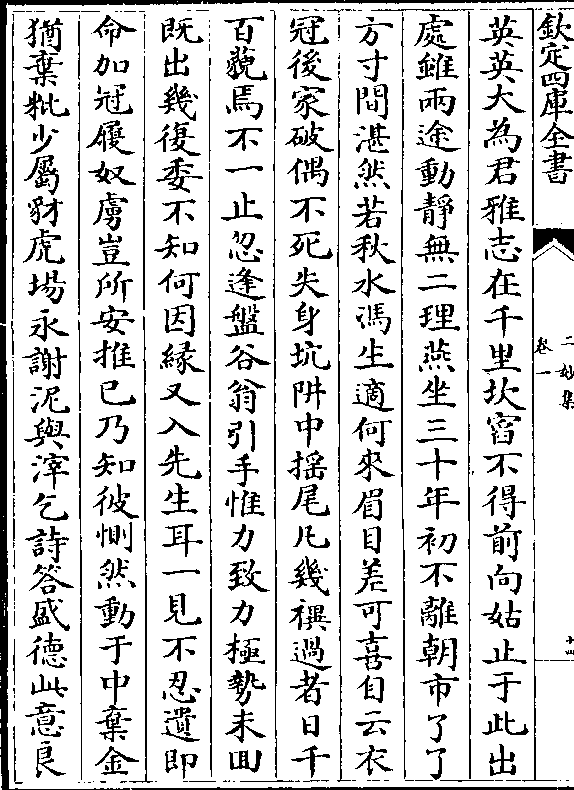 欽定四庫全書
二妙集
卷一
十四
英英大為君雅志在千里坎窞不得前向姑止于此出
處雖兩途動靜無二理燕坐三十年初不離朝市了了
方寸間湛然若秋水馮生適何來眉目差可喜自云衣
冠後家破偶不死失身坑阱中搖尾凡幾禩過者日千
百藐焉不一止忽逢盤谷翁引手惟力致力極勢未回
既出幾復委不知何因緣又入先生耳一見不忍遺即
命加冠履奴虜豈所安推已乃知彼惻然動于中棄金
猶棄粃少屬豺虎場永謝泥與滓乞詩答盛德此意良